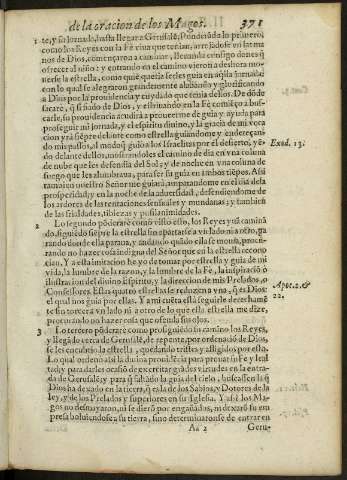 de la oracion de los Magos. 371
1 te, y su jornada, hasta llegar a Gerusalẽ, ponderãdo lo primero,
como los Reyes con la Fè viua que tenian, arrojãdose en las ma
nos de Dios, començaron a caminar, lleuando consigo dones q̃
ofrecer al niño: y entrando en el camino vieron à deshora mo-
uerse la estrella, como que queria serles guia en aquella jornada:
con lo qual se alegraron grandemente alabãdo y glorificando
a Dios por la prouidencia y cuydado que tenia dellos. De dõde
sacarè, q̃ si fiado de Dios, y estriuando en la Fè comiẽço à bus-
carle, su prouidencia acudirà a proueerme de guia y ayuda para
proseguir mi jornada, y el espiritu diuino, y la gracia de mi voca
cion yrà siẽpre delante como estrella guiandome y endereçan-
do mis passos, al modo q̃ guiò a los Israelitas por el desierto, yẽ-
do delante dellos, mostrandoles el camino de dia en vna coluna
de nube que les defendia del Sol; y de noche en vna coluna de
fuego que les alumbraua, para ser su guia en ambos tiẽpos. Assi
tambien nuestro Señor me guiarà, amparandome en el dia de la
prosperidad, y en la noche de la aduersidad, defendiendome de
los ardores de las tentaciones sensuales y mundanas; y tambien
de las frialdades, tibiezas y pusilanimidades.
Exod. 13.
2 Lo segundo põderarè como visto esto, los Reyes yuã caminã
do, siguiẽdo siẽpre la estrella sin apartarse a vn lado ni a otro, pa
rando donde ella paraua, y andando quãdo ella se mouia, procu-
rando no hazer cosa indigna del Señor que en la estrella recono
cian. Y a esta imitacion he yo de tomar por estrella y guia de mi
vida, la lumbre de la razon, y la lumbre de la Fè, la inspiraciõ o
illustracion del diuino Espiritu, y la direccion de mis Prelados, o
Confessores. Estas quatro estrellas se reduzen a vno, q̃ es Dios:
el qual nos guia por ellas. Y a mi cuẽta està seguirle derechamẽ
te sin torcer a vn lado ni a otro de lo que esta estrella me dize,
procurando no hazer cosa que ofenda sus ojos.
Apoc. 2. &
22.
3 Lo tercero põderarè como prosiguiẽdo su camino los Reyes,
y llegãdo cerca de Gerusalẽ, de repente, por ordenaciõ de Dios,
se les encubrio la estrella, quedando tristes y afligidos por esto.
Lo qual ordenò assi la diuina prouidẽcia para prouar su Fè y leal
tad: y para darles ocasiõ de exercitar grãdes virtudes en la entra-
da de Gerusalẽ: y para q̃ faltãdo la guia del cielo, buscassen la q̃
Dios ha dexado en la tierra, q̃ es la de los Sabios, y Dotores de la
ley, y de los Prelados y superiores en su Iglesia. Y assi los Ma-
gos no desmayaron, ni se dierõ por engañados, ni dexarõ su em
presa boluiendose a su tierra, sino determinaronse de entrar en
Aa 2 Geru-